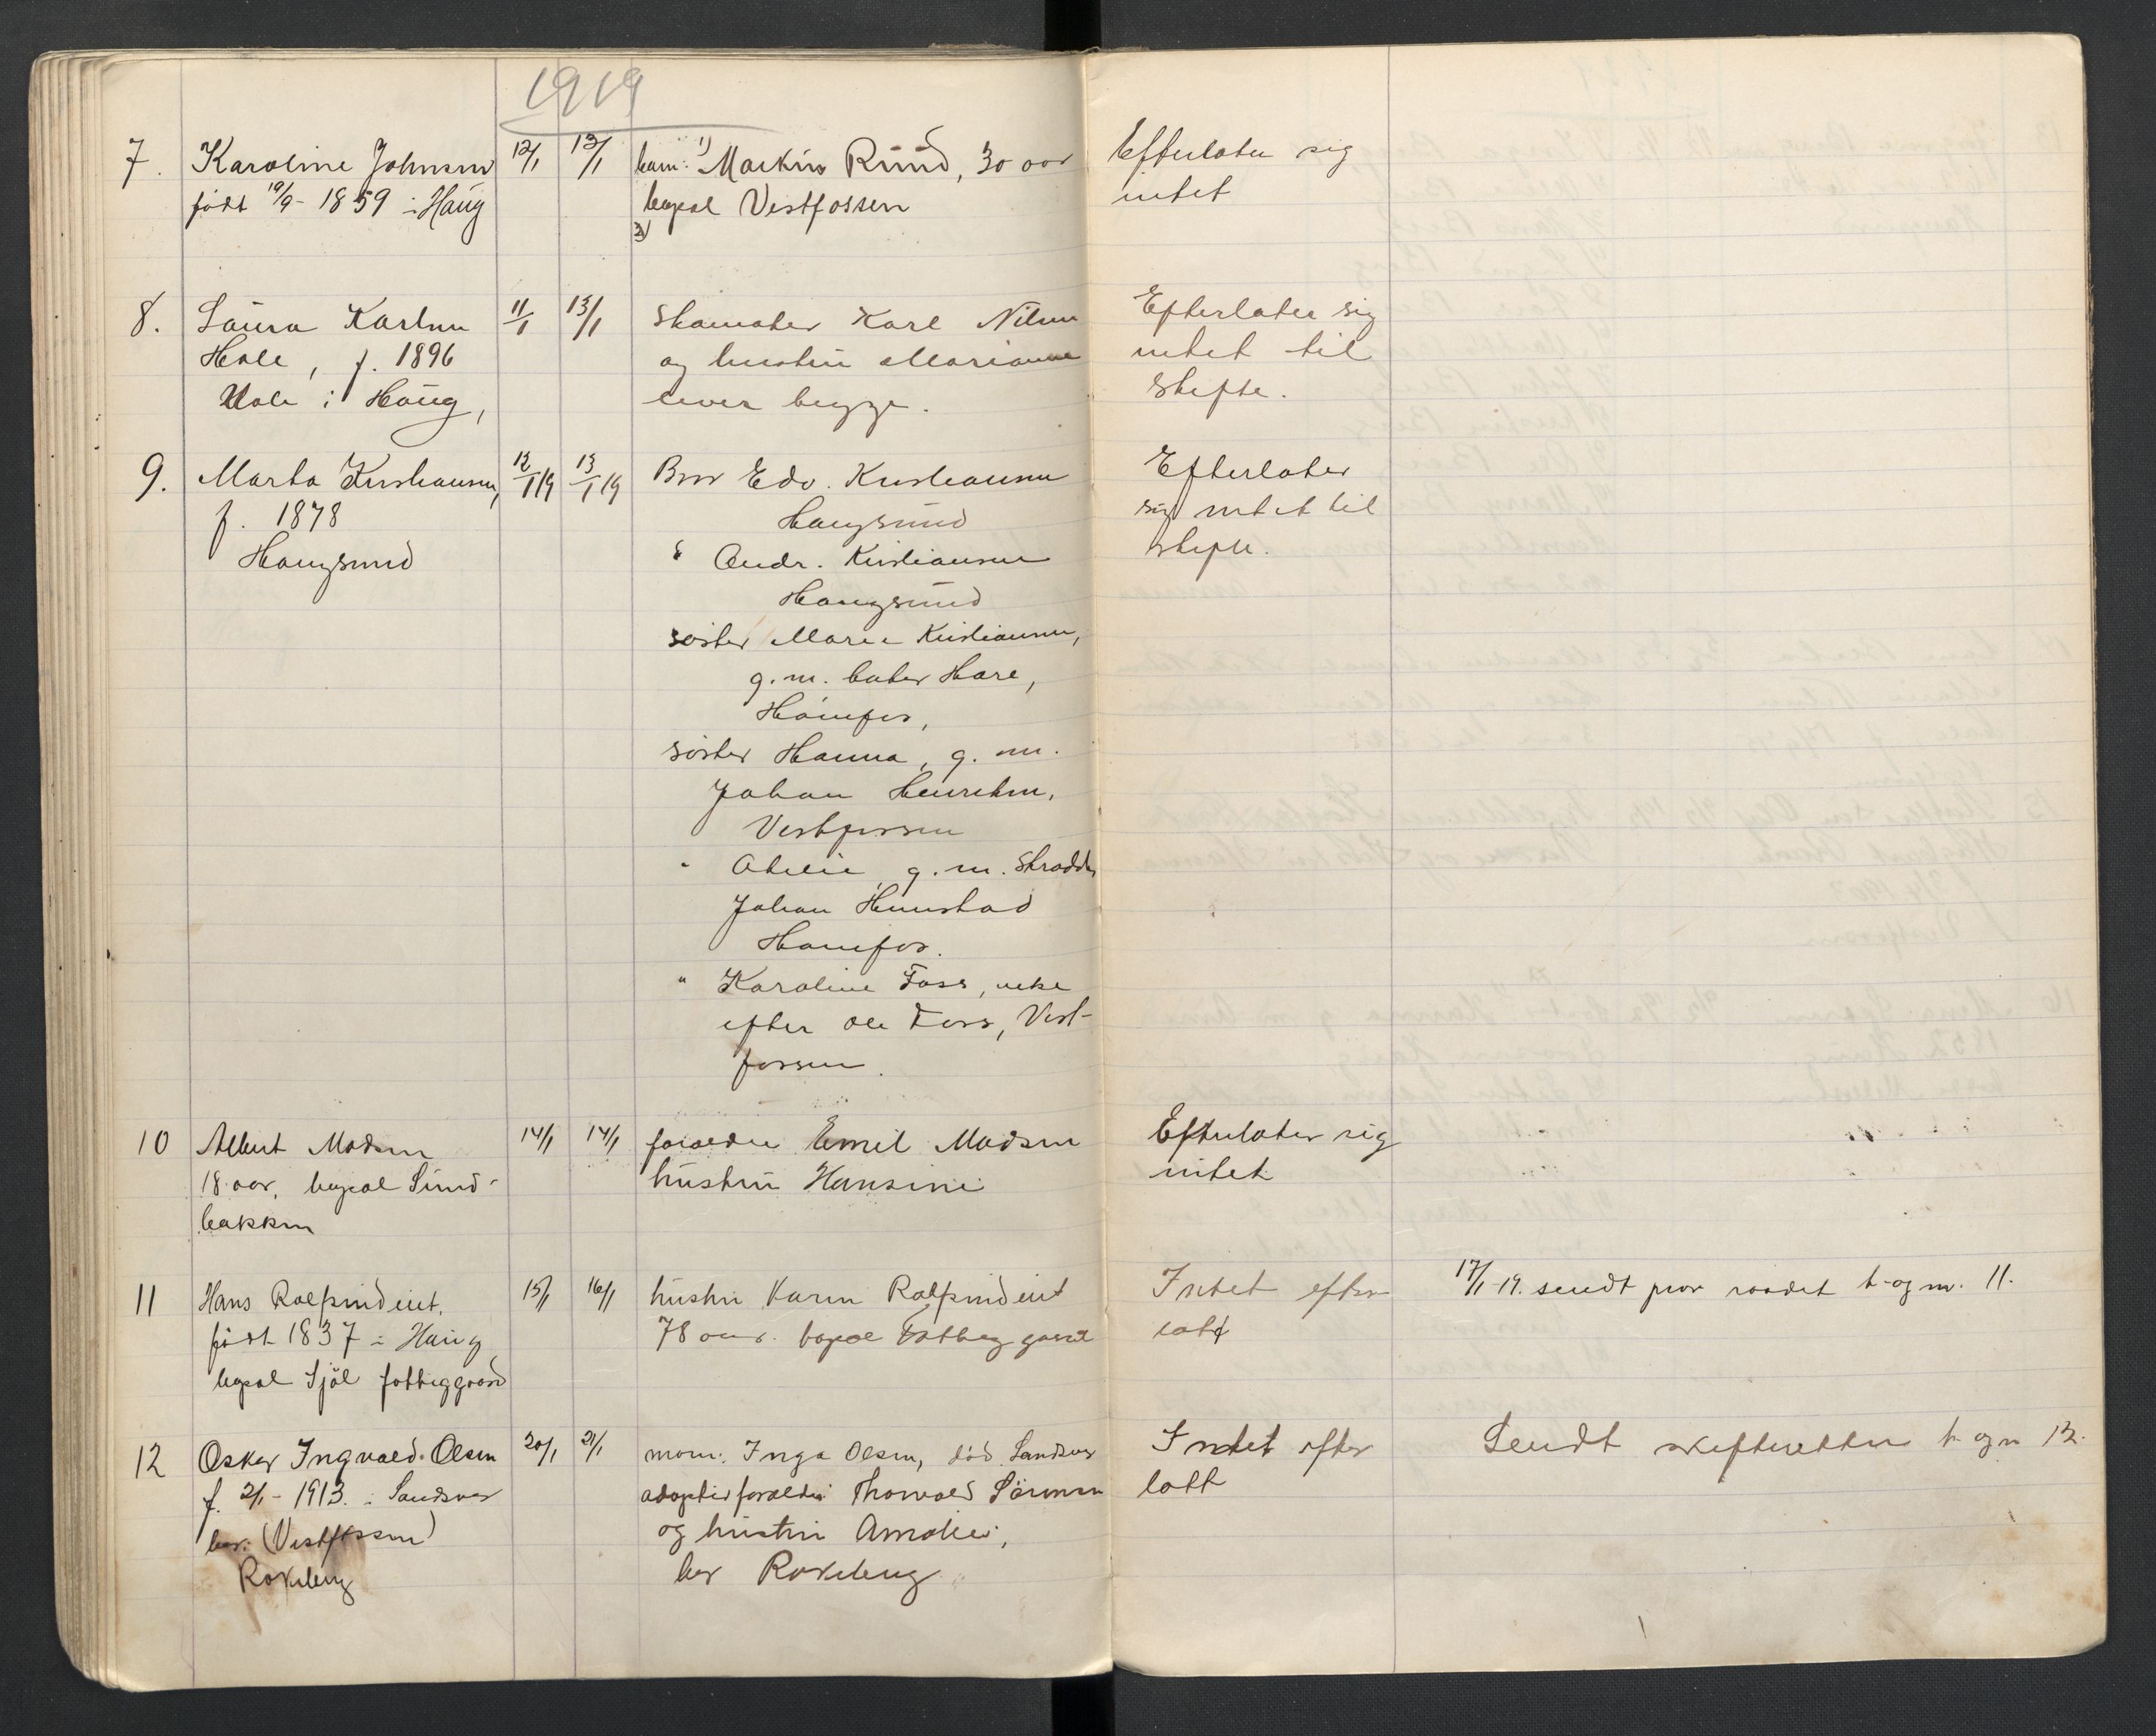 1919
7. Karoline Johnsen 12/1 13/1 barn: 1) Markus Ruud, 30 aar Efterlater sig
født 19/9 - 1859 i Haug bopæl Vestfossen intet
2)
8. Laura Karlsen 11/1 13/1 Skomaker Karl Nilsen Efterlater sig
Hole, f. 1896 og hustru Marianne intet til
Hole i Haug, lever begge. skifte.
9. Marta Kristiansen, 12/1 19 13/1 19 Bror Edv. Kristiansen Efterlater
f. 1878 Haugsund sig intet til
Haugsund " Andr. Kristiansen skifte.
Haugsund
søster Marie Kristiansen,
g. m. Hare,
søster Hanna, g. m.
Johan Henriksen,
Vestfossen
" g. m. Skrædder
Johan
" Karoline Foss, enke
efter Ole Foss, Vest-
fossen.
10 Albert Madsen 14/1 14/1 forældre Emil Madsen Efterlater sig
18 aar, bopæl Sund- hustru Hansine intet
bakken
11 Hans 15/1 16/1 hustru Karen Intet efter- 17/1-19. sendt t. og m. 11.
født 1837 i Haug 78 aar. bopæl Fattiggaard latt
bopæl fattiggaard
12 Oskar Ingvald Olsen 20/1 21/1 mor: Inga Olsen, død Sandsvær Intet efter Sendt skifteretten t. og m 12.
f. 2/1 - 1913. i Sandsvær adoptivforældre Thorvald Sørensen latt
bor: (Vestfossen) og hustru Amalie,
Rokeberg bor Rokeberg